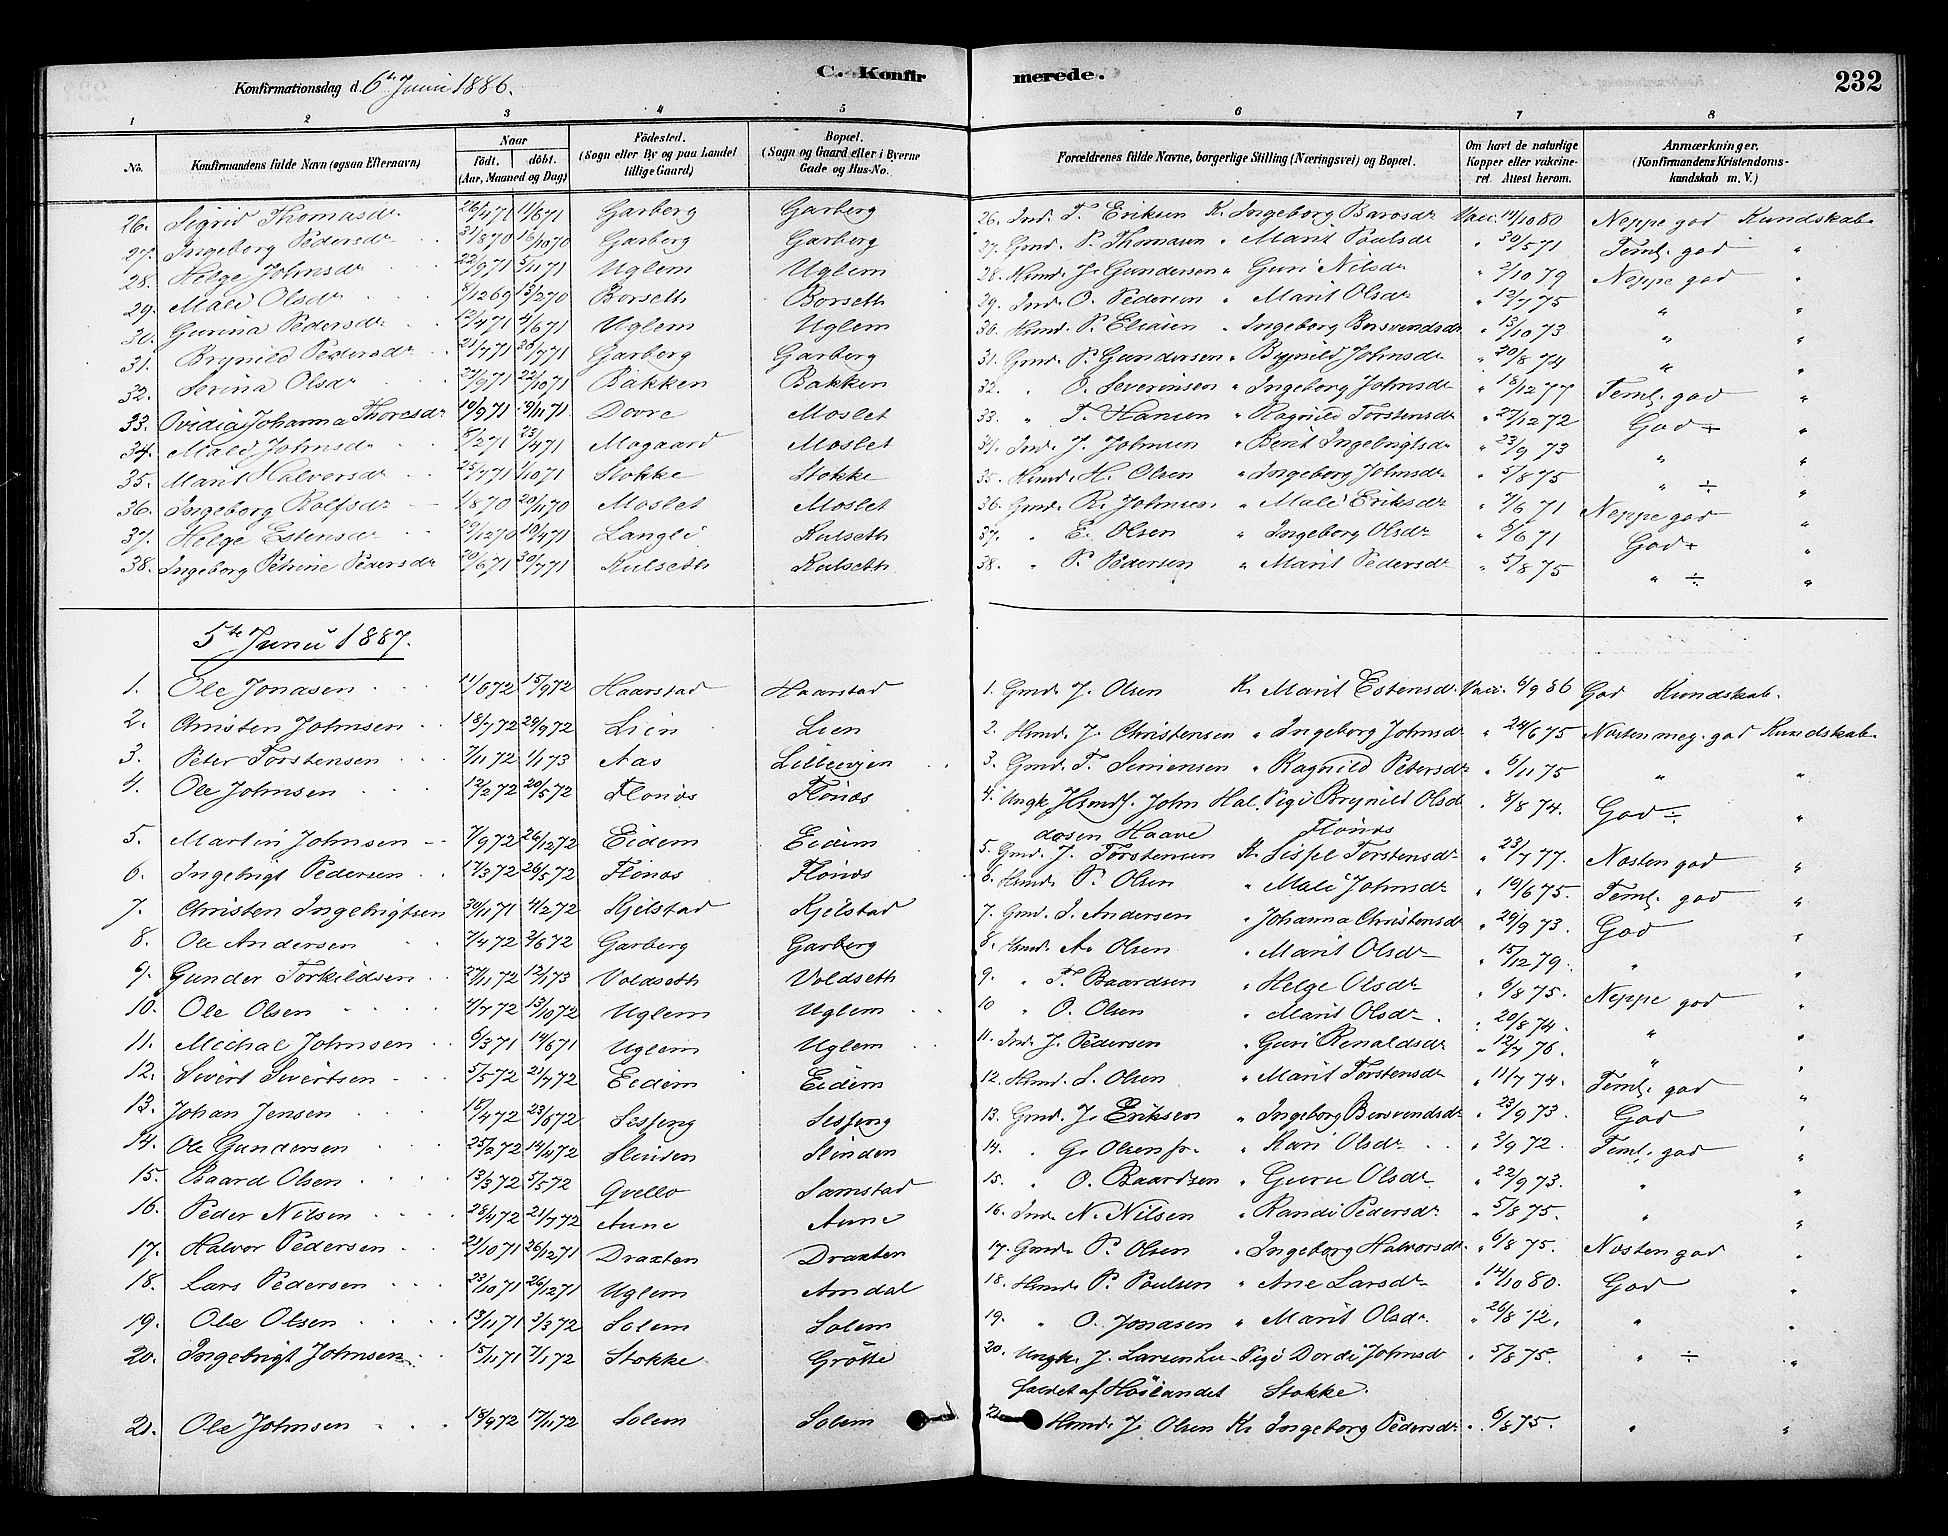 C. Konfirmerede. 232
Konfirmationsdag d. 6te Juni 1886.
1 2 3 4 5 6 7 8
No. Konfirmandens fulde Navn (ogsaa Efternavn) Naar født. døbt. (Aar, Maaned og Dag) Fødested. (Sogn eller By og paa Landet tillige Gaard) Bopæl. (Sogn og Gaard eller i Byerne Gade og Hus-No. Forældrenes fulde Navne, borgerlige Stilling (Næringsvei) og Bopæl. Om havt de naturlige Kopper eller vakcineret. Attest herom. Anmærkninger. (Konfirmandens Kristendomskundskab m. V.)
26. Sigrid Thomasdr 26/4 71 11/6 71 Garberg Garberg 26. Ind. T. Eriksen K. Ingeborg Barosdr Vacc. 14/10 80 Neppe god Kundskab
27. Ingeborg Pedersdr 31/8 70 16/10 70 Garberg Garberg 27. Gmd. P. Thomasen " Marit Paulsdr " 30/5 71 Teml. god "
28. Helge Johnsdr 22/9 71 5/11 71 Uglem Uglem 28. Hmd. J. Gundersen " Guri Nilsdr " 2/10 79 Neppe god "
29. Mali Olsdr 8/12 69 13/2 70 Borseth Borseth 29. Ind. O. Pedersen " Marit Olsdr " 12/7 75 " "
30. Gurina Pedersdr 12/4 71 4/6 71 Uglem Uglem 30. Hmd. P. Eliasen " Ingeborg Bersvendsdr " 13/10 73 " "
31. Brynild Pedersdr 21/7 71 26/7 71 Garberg Garberg 31. Gmd. P. Gundersen " Brynild Johnsdr " 20/8 74 " "
32. Serina Olsdr 27/9 71 22/10 71 Bakken Bakken 32. " O. Severinsen " Ingeborg Johnsdr " 18/12 77 Teml. god "
33. Ovidia Johanna Thoresdr 10/9 71 5/11 71 Dovre Moslet 33. " T. Hansen " Ragnild Torstensdr " 27/12 72 God ÷ "
34. Mali Johnsdr 8/2 71 23/4 71 Mogaard Moslet 34. Ind. J. Johnsen " Berit Ingebrigtsdr " 23/9 73 " "
35. Marit Halvorsdr 25/7 71 1/10 71 Stokke Stokke 35. Hmd. H. Olsen " Ingeborg Johnsdr " 5/8 75 " ÷ "
36. Ingeborg Rolfsdr 1/8 70 20/11 70 Moslet Moslet 36. Gmd. R. Johnsen " Mali Eriksdr " 7/6 71 Neppe god "
37. Helge Estensdr 29/12 70 10/4 71 Langli Kulseth 37. " E. Olsen " Ingeborg Olsdr " 9/6 71 God ÷ "
38. Ingeborg Petrine Pedersdr 20/6 71 30/7 71 Kulseth Kulseth 38. " P. Pedersen " Marit Pedersdr " 5/8 75 " ÷ "
5te Juni 1887.
1. Ole Jonasen 11/6 72 15/9 72 Haarstad Haarstad 1. Gmd. J. Olsen K. Marit Estensdr Vacc. 6/9 86 God Kundskab.
2. Christen Johnsen 18/7 72 29/9 72 Lien Lien 2. Hmd. J. Christensen " Ingeborg Johnsdr " 24/6 75 Næsten meg. god Kundskab
3. Peter Torstensen 7/11 72 1/1 73 Aas 3. Gmd. T. Simensen " Ragnild Petersdr " 6/11 75 " "
4. Ole Johnsen 12/2 72 20/5 72 Flönæs Flönæs 4. Ungk. John Hal- Pige Brynild Olsd " 8/8 74. God ÷ "
dosen Haave Flönæs
5. Martin Johnsen 7/9 72 26/12 72 Eidem Eidem 5. Gmd. J. Torstensen K. Sissel Torstensdr " 23/7 77. Næsten god "
6. Ingebrigt Pedersen 17/3 72 26/5 72 Flönæs Flönæs 6. Hmd. P. Olsen " Mali Johnsdr " 19/6 75. Teml. god "
7. Christen Ingebrigtsen 30/11 71 4/2 72 Kjelstad Kjelstad 7. Gmd. I. Andersen " Johanna Christensdr " 29/9 73. God "
8. Ole Andersen 7/4 72 2/6 72 Garberg Garberg 8. Hmd. A. Olsen " Marit Olsdr " 15/12 79. " "
9. Gunder Torkildsen 27/11 72 12/1 73 Voldseth Voldseth 9. " T. Baardsen " Helge Olsdr " 6/8 75. Neppe god "
10. Ole Olsen 7/7 72 13/10 72 Uglem Uglem 10 " O. Olsen " Marit Olsdr " 20/8 74. " "
11. Michal Johnsen 6/3 71 14/6 71 Uglem Uglem 11. Ind. J. Pedersen " Guri Renaldsdr " 12/7 76. " "
12. Sivert Sivertsen 5/5 72 21/7 72 Eidem Eidem 12. Hmd. S. Olsen " Marit Torstensdr " 11/7 74. Teml. god "
13. Johan Jensen 18/4 72 23/6 72 Sesseng Sesseng 13. Gmd. J. Eriksen " Ingeborg Bersvendsdr " 23/9 73. God "
14. Ole Gundersen 25/2 72 14/4 72 Slinden Slinden 14. " G. Olsen jr. " Kari Olsdr " 2/9 72. Teml. god "
15. Baard Olsen 13/3 72 5/5 72 Qvello Samstad 15. " O. Baardsen " Guru Olsdr " 22/9 73. " "
16. Peder Nilsen 28/4 72 21/7 72 Aune Aune 16. Ind. N. Nilsen " Randi Pedersdr " 5/8 75. " "
17. Halvor Pedersen 23/10 71 26/12 71 Draxten Draxten 17. Gmd. P. Olsen " Ingeborg Halvorsdr " 6/8 75. Næsten god "
18. Lars Pedersen 23/10 71 26/12 71 Uglem Amdal 18. Hmd. P. Poulsen " Ane Larsdr " 14/10 80. God "
19. Ole Olsen 13/11 71 3/3 72 Solem Solem 19. " O. Jonasen " Marit Olsdr " 26/8 72. " "
20. Ingebrigt Johnsen 15/11 71 7/1 72 Stokke Grötte 20. Ungk. J. Larsen Lu- Pige Dordi Johnsd " 5/8 75. " ÷ "
faldet af Höilandet Stokke.
21. Ole Johnsen 18/9 72 17/11 72 Solem Solem 21. Hmd. J. Olsen K. Ingeborg Pedersdr " 6/8 75. " "